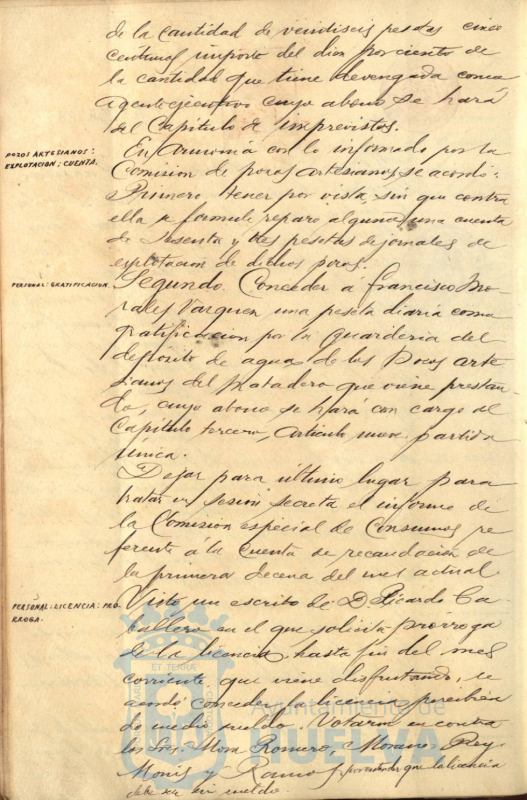 de la cantidad de veintiseis pesetas cinco
centimos importe del diez por ciento de
la cantidad que tiene devengada como
Agente ejecutivo cuyo abono se hará
del Capítulo de imprevistos.
POZOS ARTESIANOS:
EXPLOTACION; CUENTA.
En Armonía con lo informado por la
Comision de pozos artesianos, se acordó:
Primero tener por vista, sin que contra
ella se formule reparo alguno, una cuenta
de sesenta y tres pesetas de jornales de
explotacion de dichos pozos.
PERSONAL: GRATIFICACION.
Segundo. Conceder a Francisco Mo-
rales Vazquez una peseta diaria como
gratificacion por la guarderia del
deposito de agua de los Pozos arte-
sianos del Matadero que viene prestan-
do, cuyo abono se hará con cargo al
Capítulo tercero, artículo nueve, partida
única.
Dejar para último lugar para
tratar en sesión secreta el informe de
la Comisión especial de Consumos re-
ferente á la cuenta de recaudación de
la primera decena del mes actual
PERSONAL: LICENCIA: PRO-
RROGA.
Visto un escrito de D. Ricardo Ca-
ballero en el que solicita prórroga
de la licencia, hasta fin del mes
corriente que viene disfrutando, se
acordó conceder la licencia percibien-
do medio sueldo. Votaron en contra
los Sres. Mora Romero, Moreno, Rey
Monis y Ramos por entender que la licencia
debe ser sin sueldo.
ET TERRA
Ayuntamiento de
HUELVA